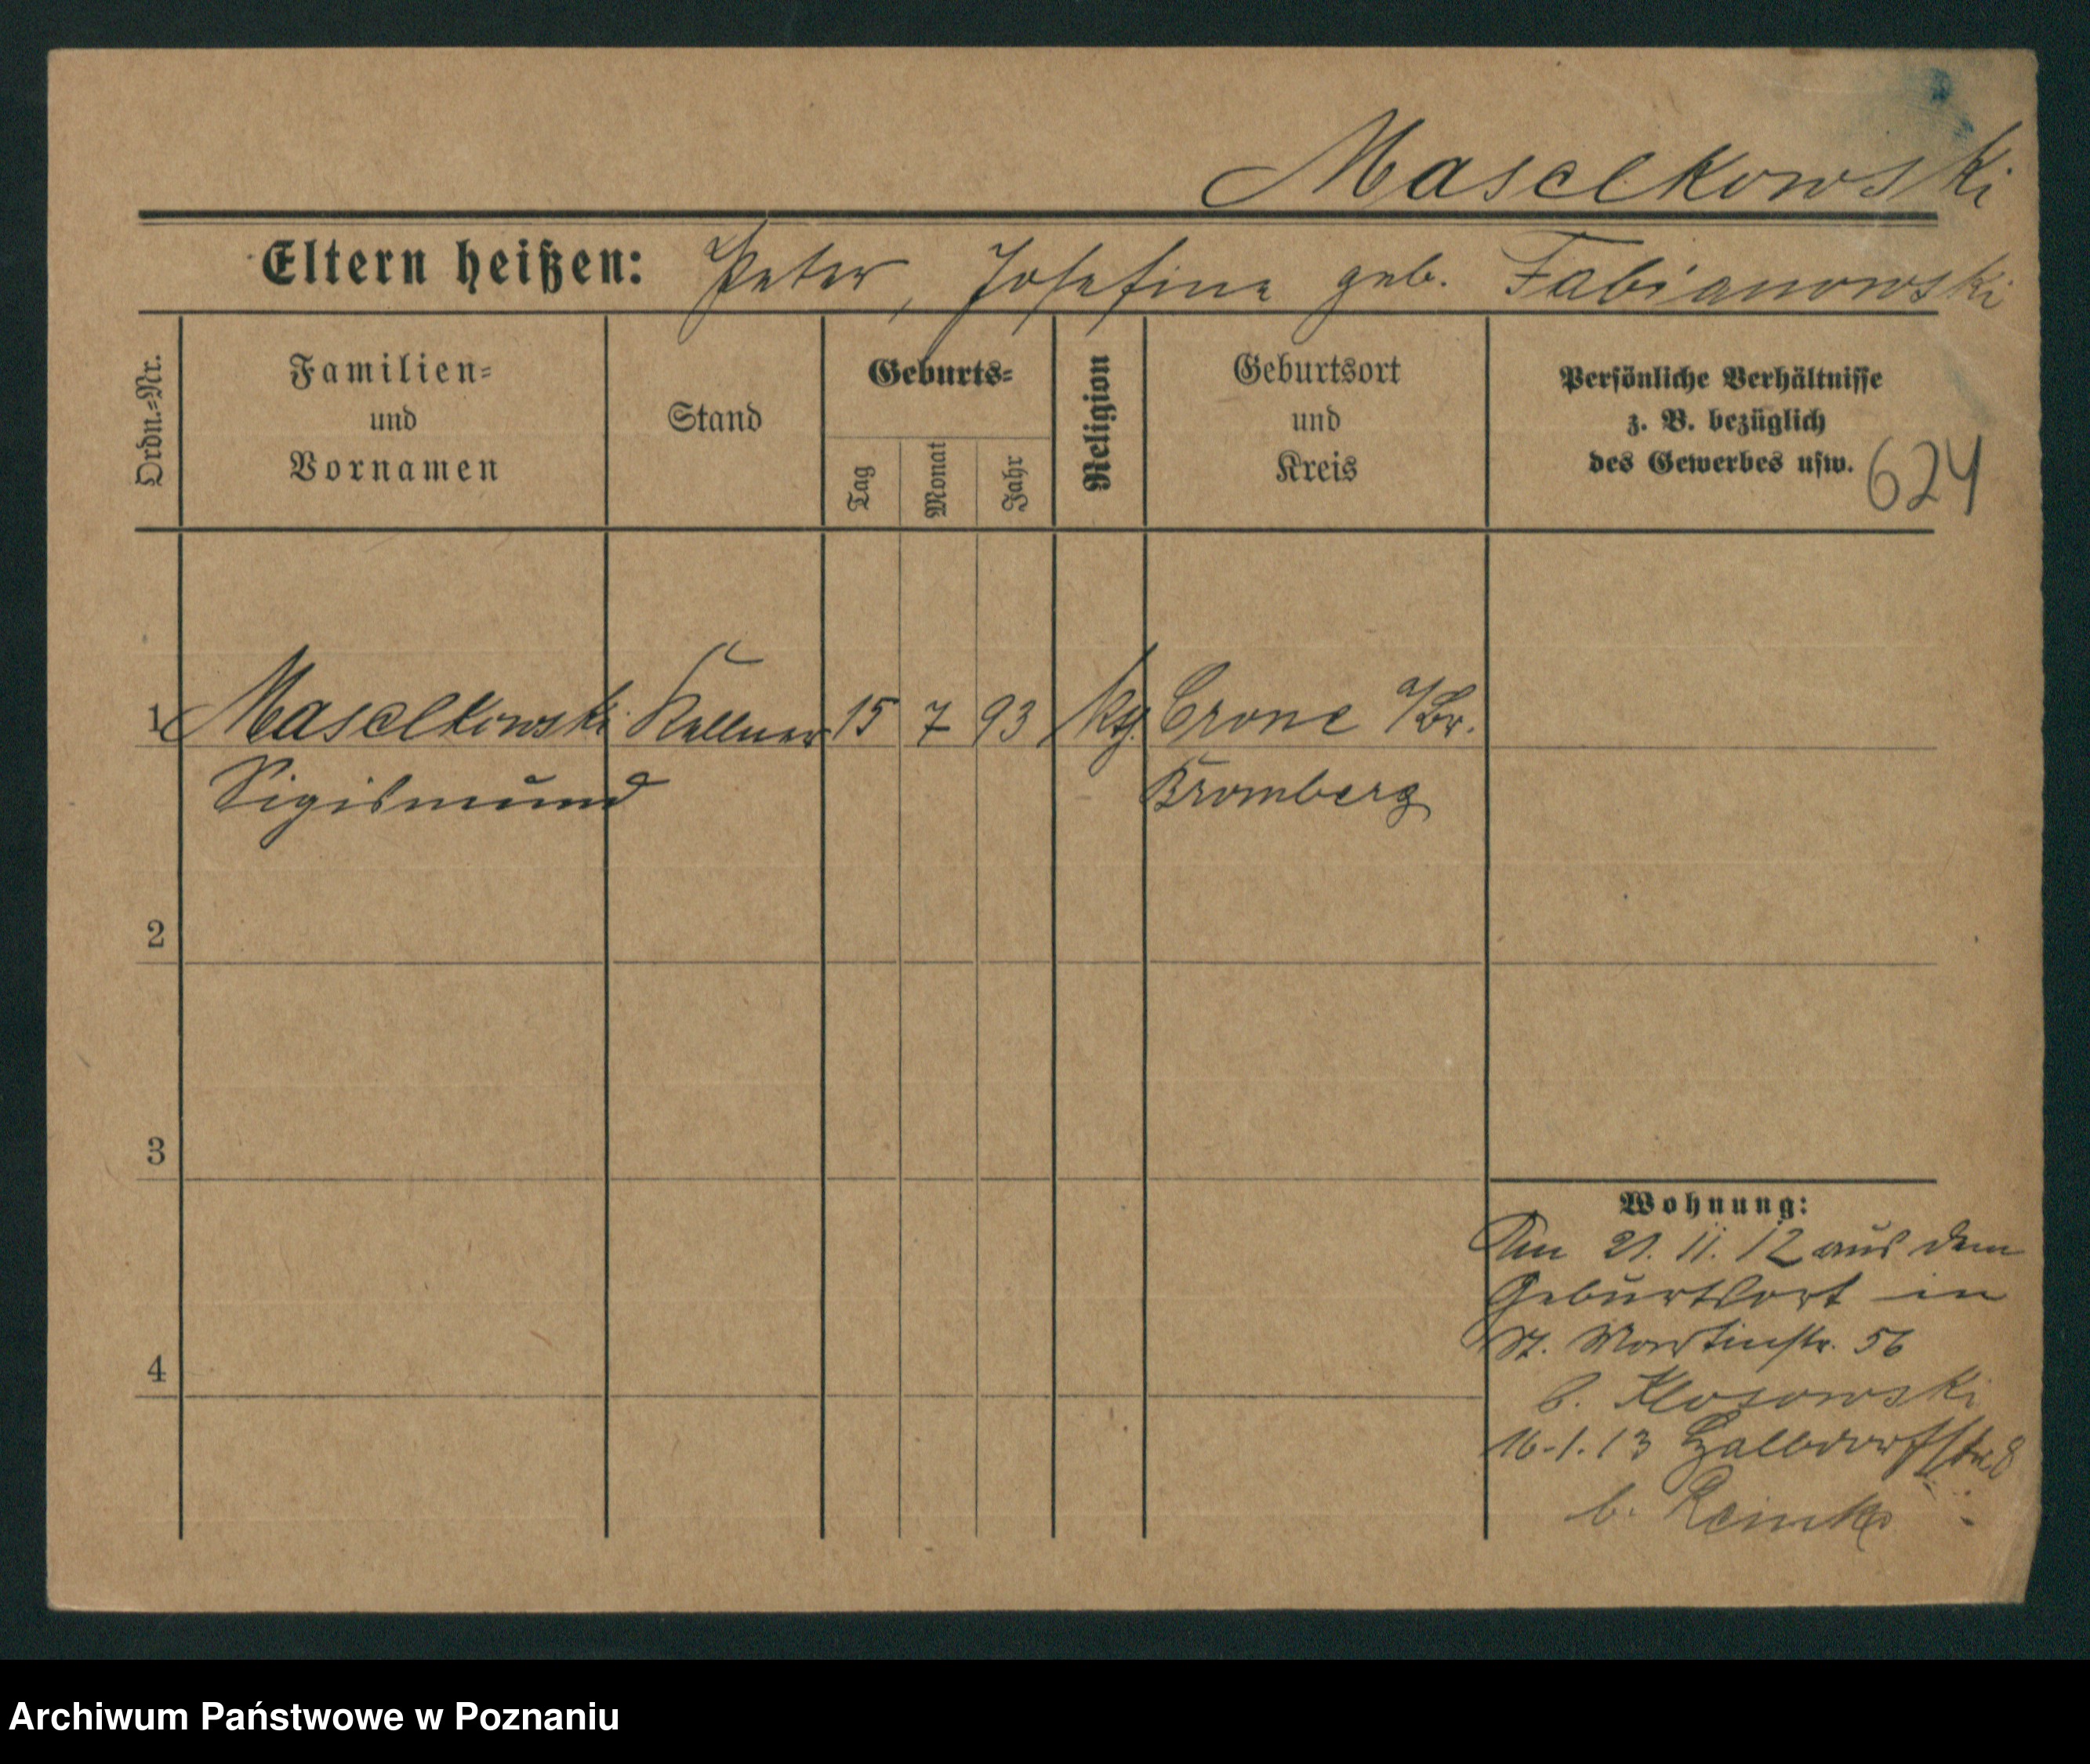 Maselkowski
Eltern heißen: Peter, Josefine geb. Fabianowski
Ordn.=Nr.
Familien=
und
Vornamen
Stand
Geburts=
Tag
Monat
Jahr
Religion
Geburtsort
und
Kreis
Persönliche Verhältnisse
z. B. bezüglich
des Gewerbes usw.
624
1 Maselkowski Kellner 15 7 93 Crone a/Br.
Sigismund Bromberg
2
3
4
Wohnung:
Am 21. 11. 12 aus dem
Geburtsort in
St. Martinstr. 56
b. Klosowski
16.1.13 Halbdorfstr 8
b.
Archiwum Państwowe w Poznaniu